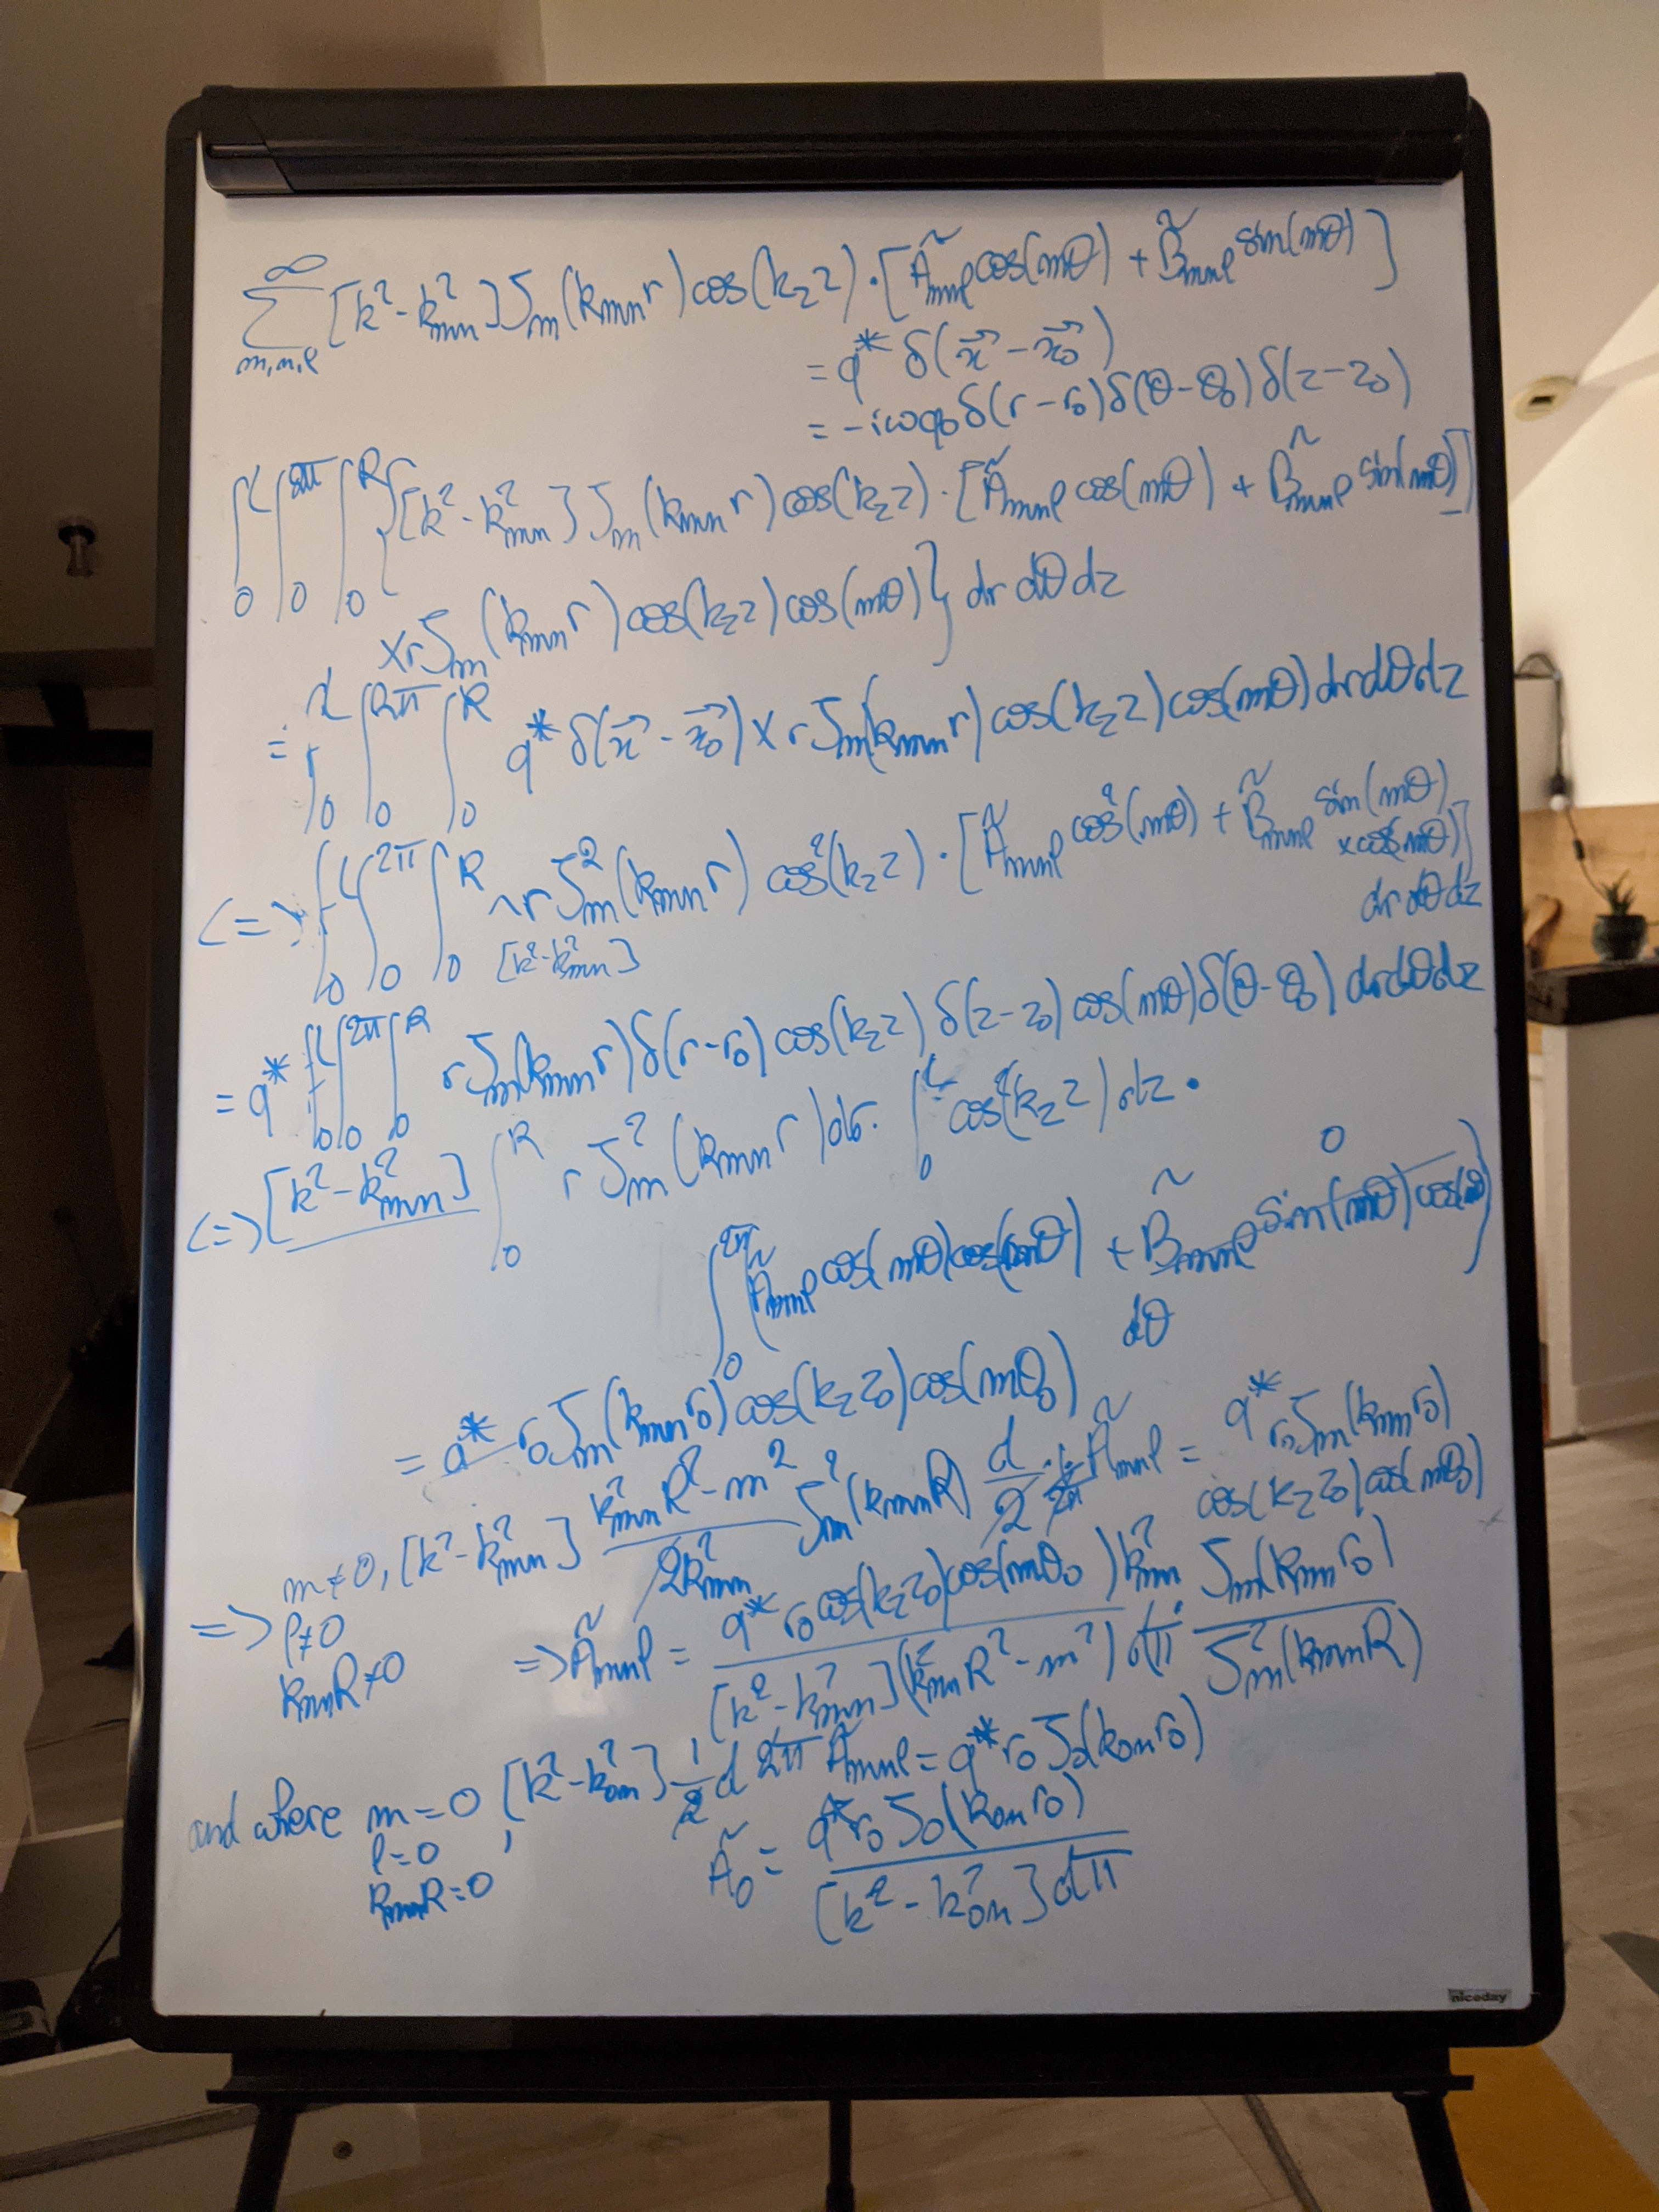 ∞
Σ [k² - k²mn] Jm(kmn r) cos(kz z) · [Ãmnl cos(mθ) + B̃mnl sin(mθ)]
m,n,l
= q* δ(x⃗ - x⃗0)
= -iωq0 δ(r - r0) δ(θ - θ0) δ(z - z0)
∫0^L ∫0^2π ∫0^R {[k² - k²mn] Jm(kmn r) cos(kz z) · [Ãmnl cos(mθ) + B̃mnl sin(mθ)]
x r Jm(kmn r) cos(kz z) cos(mθ)} dr dθ dz
= ∫0^d ∫0^2π ∫0^R q* δ(x⃗ - x⃗0) x r Jm(kmn r) cos(kz z) cos(mθ) dr dθ dz
<=> ∫0^L ∫0^2π ∫0^R r Jm²(kmn r) cos²(kz z) · [Ãmnl cos²(mθ) + B̃mnl sin(mθ)
x cos(mθ)]
[k² - k²mn]
dr dθ dz
= q* ∫0^L ∫0^2π ∫0^R r Jm(kmn r) δ(r - r0) cos(kz z) δ(z - z0) cos(mθ) δ(θ - θ0) dr dθ dz
<=> [k² - k²mn] ∫0^R r Jm²(kmn r) dr · ∫0^L cos²(kz z) dz ·
0
∫0^2π [Ãmnl cos(mθ) cos(mθ) + B̃mnl sin(mθ) cos(mθ)]
dθ
= q* r0 Jm(kmn r0) cos(kz z0) cos(mθ0)
=> m≠0, [k² - k²mn] (k²mn R² - m²)/(2k²mn) Jm²(kmn R) d/2 Ãmnl = q* r0 Jm(kmn r0)
cos(kz z0) cos(mθ0)
l≠0
kmn R≠0
=> Ãmnl = (q* r0 cos(kz z0) cos(mθ0) k²mn)/([k² - k²mn](k²mn R² - m²) dπ) · Jm(kmn r0)/Jm²(kmn R)
and where m=0, [k² - k²0n] 1/2 d 2π Ãmnl = q* r0 J0(k0n r0)
l=0
kmn R=0
Ã0 = (q* r0 J0(k0n r0))/([k² - k²0n] dπ)
niceday